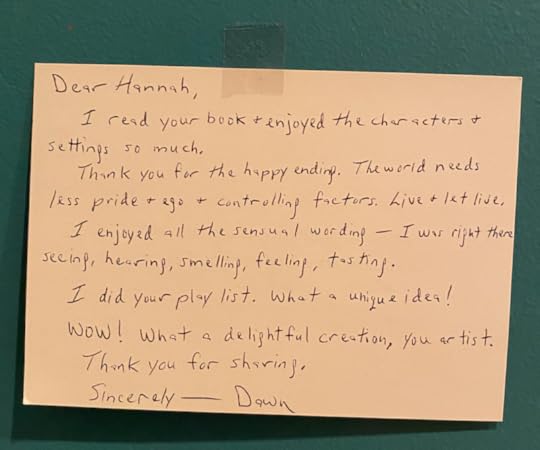 Dear Hannah,
I read your book + enjoyed the characters +
settings so much.
Thank you for the happy ending. The world needs
less pride + ego + controlling factors. Live + let live.
I enjoyed all the sensual wording — I was right there
seeing, hearing, smelling, feeling, tasting.
I did your play list. What a unique idea!
WOW! What a delightful creation, you artist.
Thank you for sharing.
Sincerely — Dawn